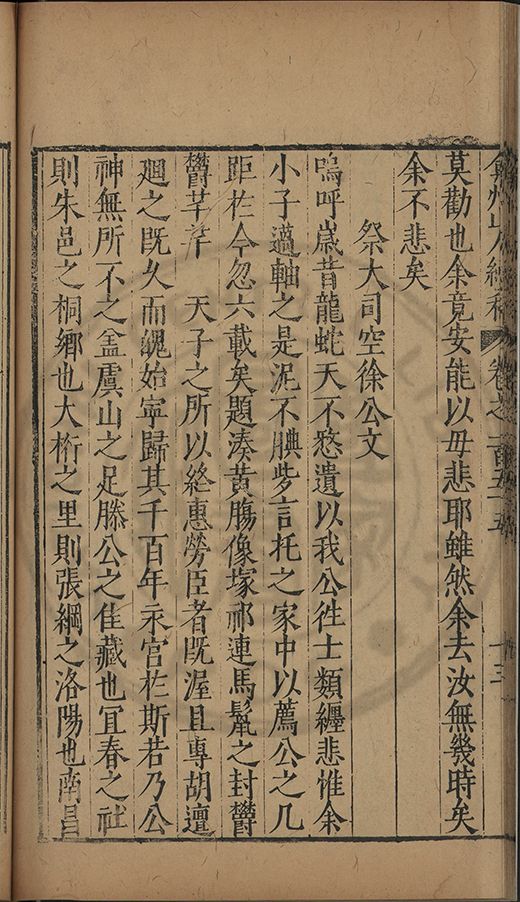 弇州山人續稿 卷之一百五十五 十三
莫勸也余竟安能以毋悲耶雖然余去汝無幾時矣
余不悲矣
祭大司空徐公文
嗚呼歲昔龍蛇天不憗遺以我公徃士類纏悲惟余
小子邁軸之是泥不腆些言托之家中以薦公之几
距於今忽六載矣題湊黃膓像塚祁連馬鬛之封鬱
鬱芊芊 天子之所以終惠勞臣者既渥且專胡邅
迴之既久而魄始寧歸其千百年永宮於斯若乃公
神無所不之盖虞山之足滕公之佳藏也宜春之社
則朱邑之桐鄉也大桁之里則張綱之洛陽也南昌